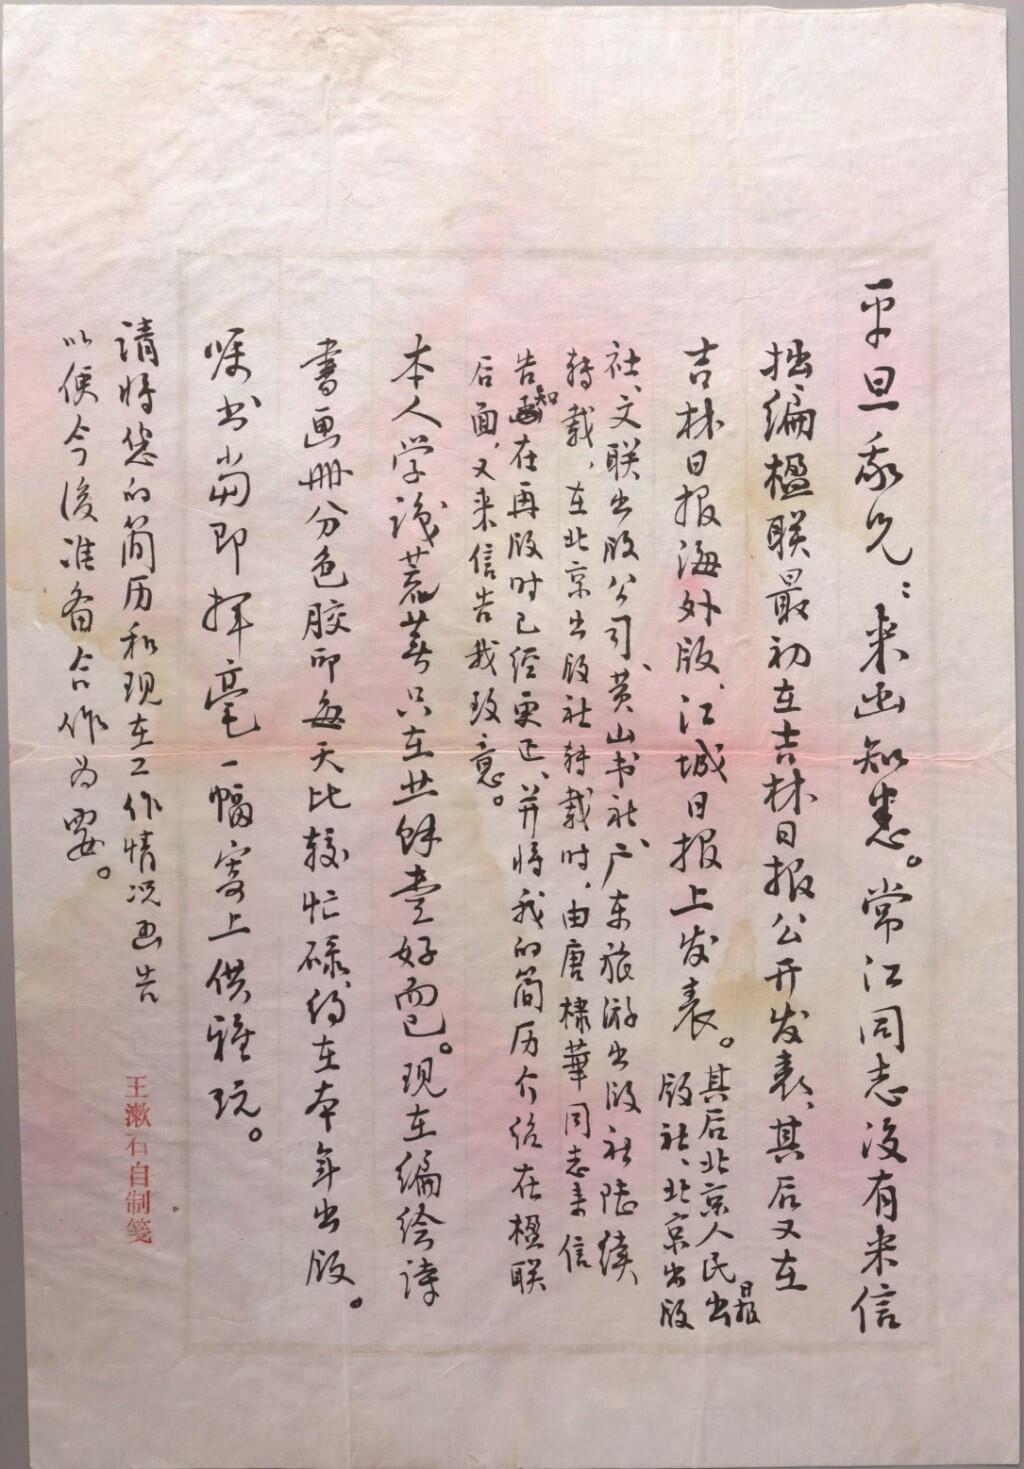 平旦永兄：来函知悉。常江同志没有来信
拙编楹联最初在吉林日报公开发表、其后又在
吉林日报海外版、江城日报上发表。其后北京人民日报出
版社、北京出版
社、文联出版公司、黄山书社、广东旅游出版社陆续
转载，在北京出版社转载时，由唐棣华同志来信
告知在再版时已经更正、并将我的简历介绍在楹联
后面，又来信告我致意。
本人学浅荒芜只在业馀爱好而已。现在编绘诗
书画册分色胶印每天比较忙碌，约在本年出版。
嘱书当即挥毫一幅寄上供雅玩。
请将您的简历和现在工作情况函告
以便今後准备合作为要。
王漱石自制笺